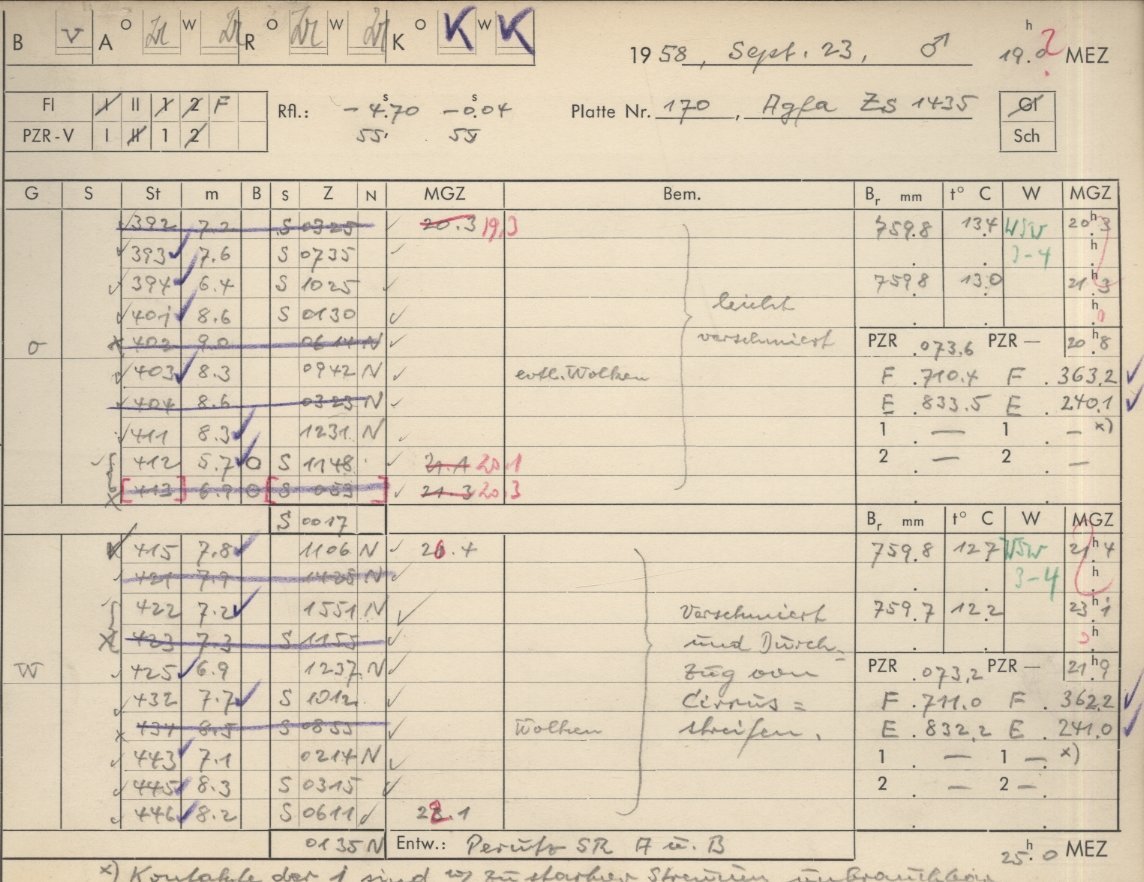 B V A O Zr W Zr R O Zr W Zr K O K W K
1958, Sept. 23, ♂ 19.0 h ? MEZ
FI I II 1 2 F
PZR-V I II 1 2
Rfl.: -4.70 s -0.04 s
55 55
Platte Nr. 170, Agfa Zs 1435
GI
Sch
G S St m B S Z N MGZ Bem. Br mm t° C W MGZ
392 7.2 S 0325 20.3 19,3 759.8 13.4 WSW 20 h 3
393 7.6 S 0735 3-4 h
394 6.4 S 1025 759.8 13.0 21 h 3
401 8.6 S 0130 leicht h
O 402 9.0 0614 N verschmiert PZR .073.6 PZR — 20 h 8
403 8.3 0942 N evtl. Wolken F .710.4 F .363.2
404 8.6 0323 N E .833.5 E .240.1
411 8.3 1231 N 1 — 1 — x)
412 5.7 O S 1148 21.1 20.1 2 — 2 —
[413] 6.9 O [S 053 ] 21.3 20.3
S 0017 Br mm t° C W MGZ
415 7.8 1106 N 20.4 759.8 12.7 WSW 21 h 4
421 7.9 1428 N 3-4 h
422 7.2 1551 N Verschmiert 759.7 12.2 23 h 1
423 7.3 S 1155 und Durch- h
W 425 6.9 1237 N zug von PZR .073,2 PZR — 21 h 9
432 7.7 S 1012 Cirrus= F .711.0 F .362.2
434 8.5 S 0855 Wolken streifen. E .832,2 E .241.0
443 7.1 0214 N 1 — 1 — x)
445 8.3 S 0315 2 — 2 —
446 8.2 S 0611 22.1
0135 N Entw.: Perutz SR A u. B 25.0 h MEZ
x) Kontakte der 1 sind wg zu starker Streuung unbrauchbar